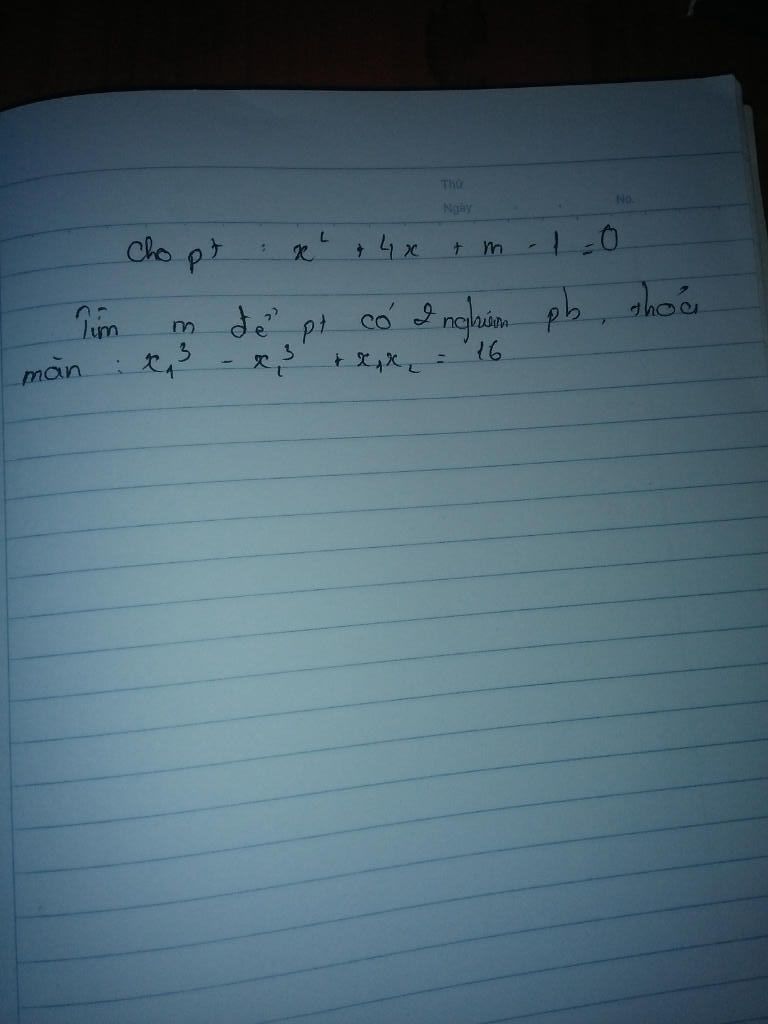 Thứ
Ngày
No.
Cho pt : x² + 4x + m - 1 = 0
Tìm m để pt có 2 nghiệm pb, thỏa
mãn : x₁³ - x₂³ + x₁x₂ = 16